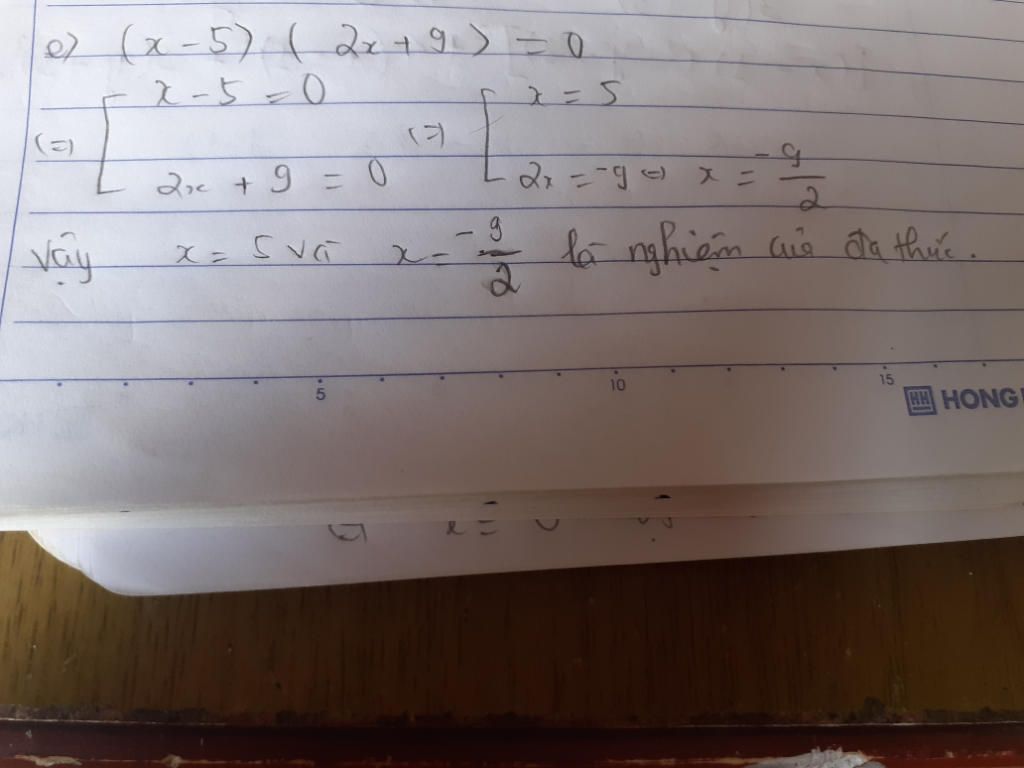 e) (x - 5) ( 2x + 9 ) = 0
(=) [ x - 5 = 0 (=) [ x = 5
2x + 9 = 0 2x = -9 (=) x = -9/2
Vậy x = 5 và x = -9/2 là nghiệm của đa thức.
5 10 15
HH HONG
(=) x =